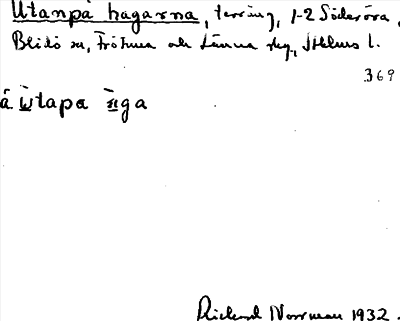 Utanpå hagarna, terräng, 1-2 Söderöra,
Blidö sn, Frötuna och Länna skg., Sthlms l.
369
å ẁtapa ǹga
Rickard Norrman 1932.